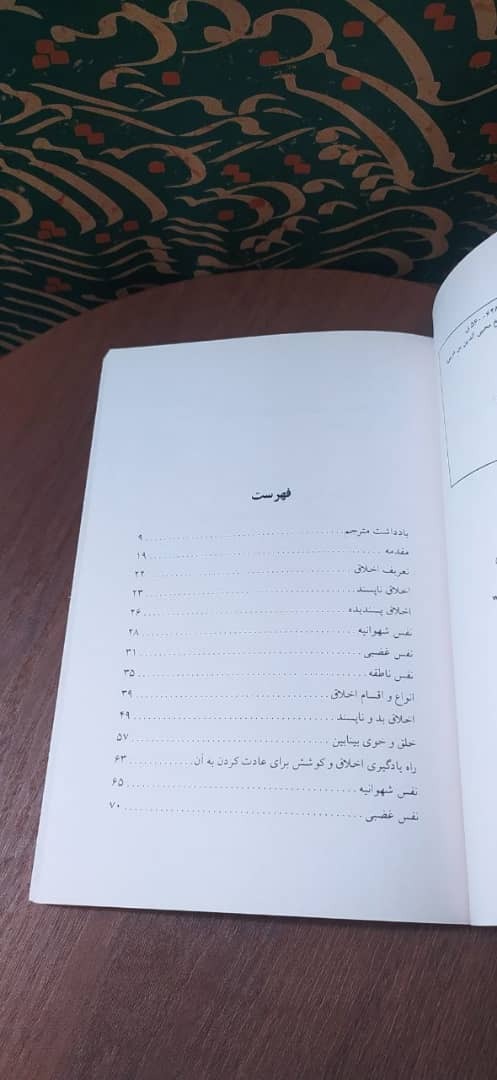 فهرست
یادداشت مترجم ........................ ۹
مقدمه ........................ ۱۹
تعریف اخلاق ........................ ۲۲
اخلاق ناپسند ........................ ۲۳
اخلاق پسندیده ........................ ۲۶
نفس شهوانیه ........................ ۲۸
نفس غضبی ........................ ۳۱
نفس ناطقه ........................ ۳۵
انواع و اقسام اخلاق ........................ ۳۹
اخلاق بد و ناپسند ........................ ۴۹
خلق و خوی بینابین ........................ ۵۷
راه یادگیری اخلاق و کوشش برای عادت کردن به آن ............ ۶۳
نفس شهوانیه ........................ ۶۵
نفس غضبی ........................ ۷۰
محیی الدین